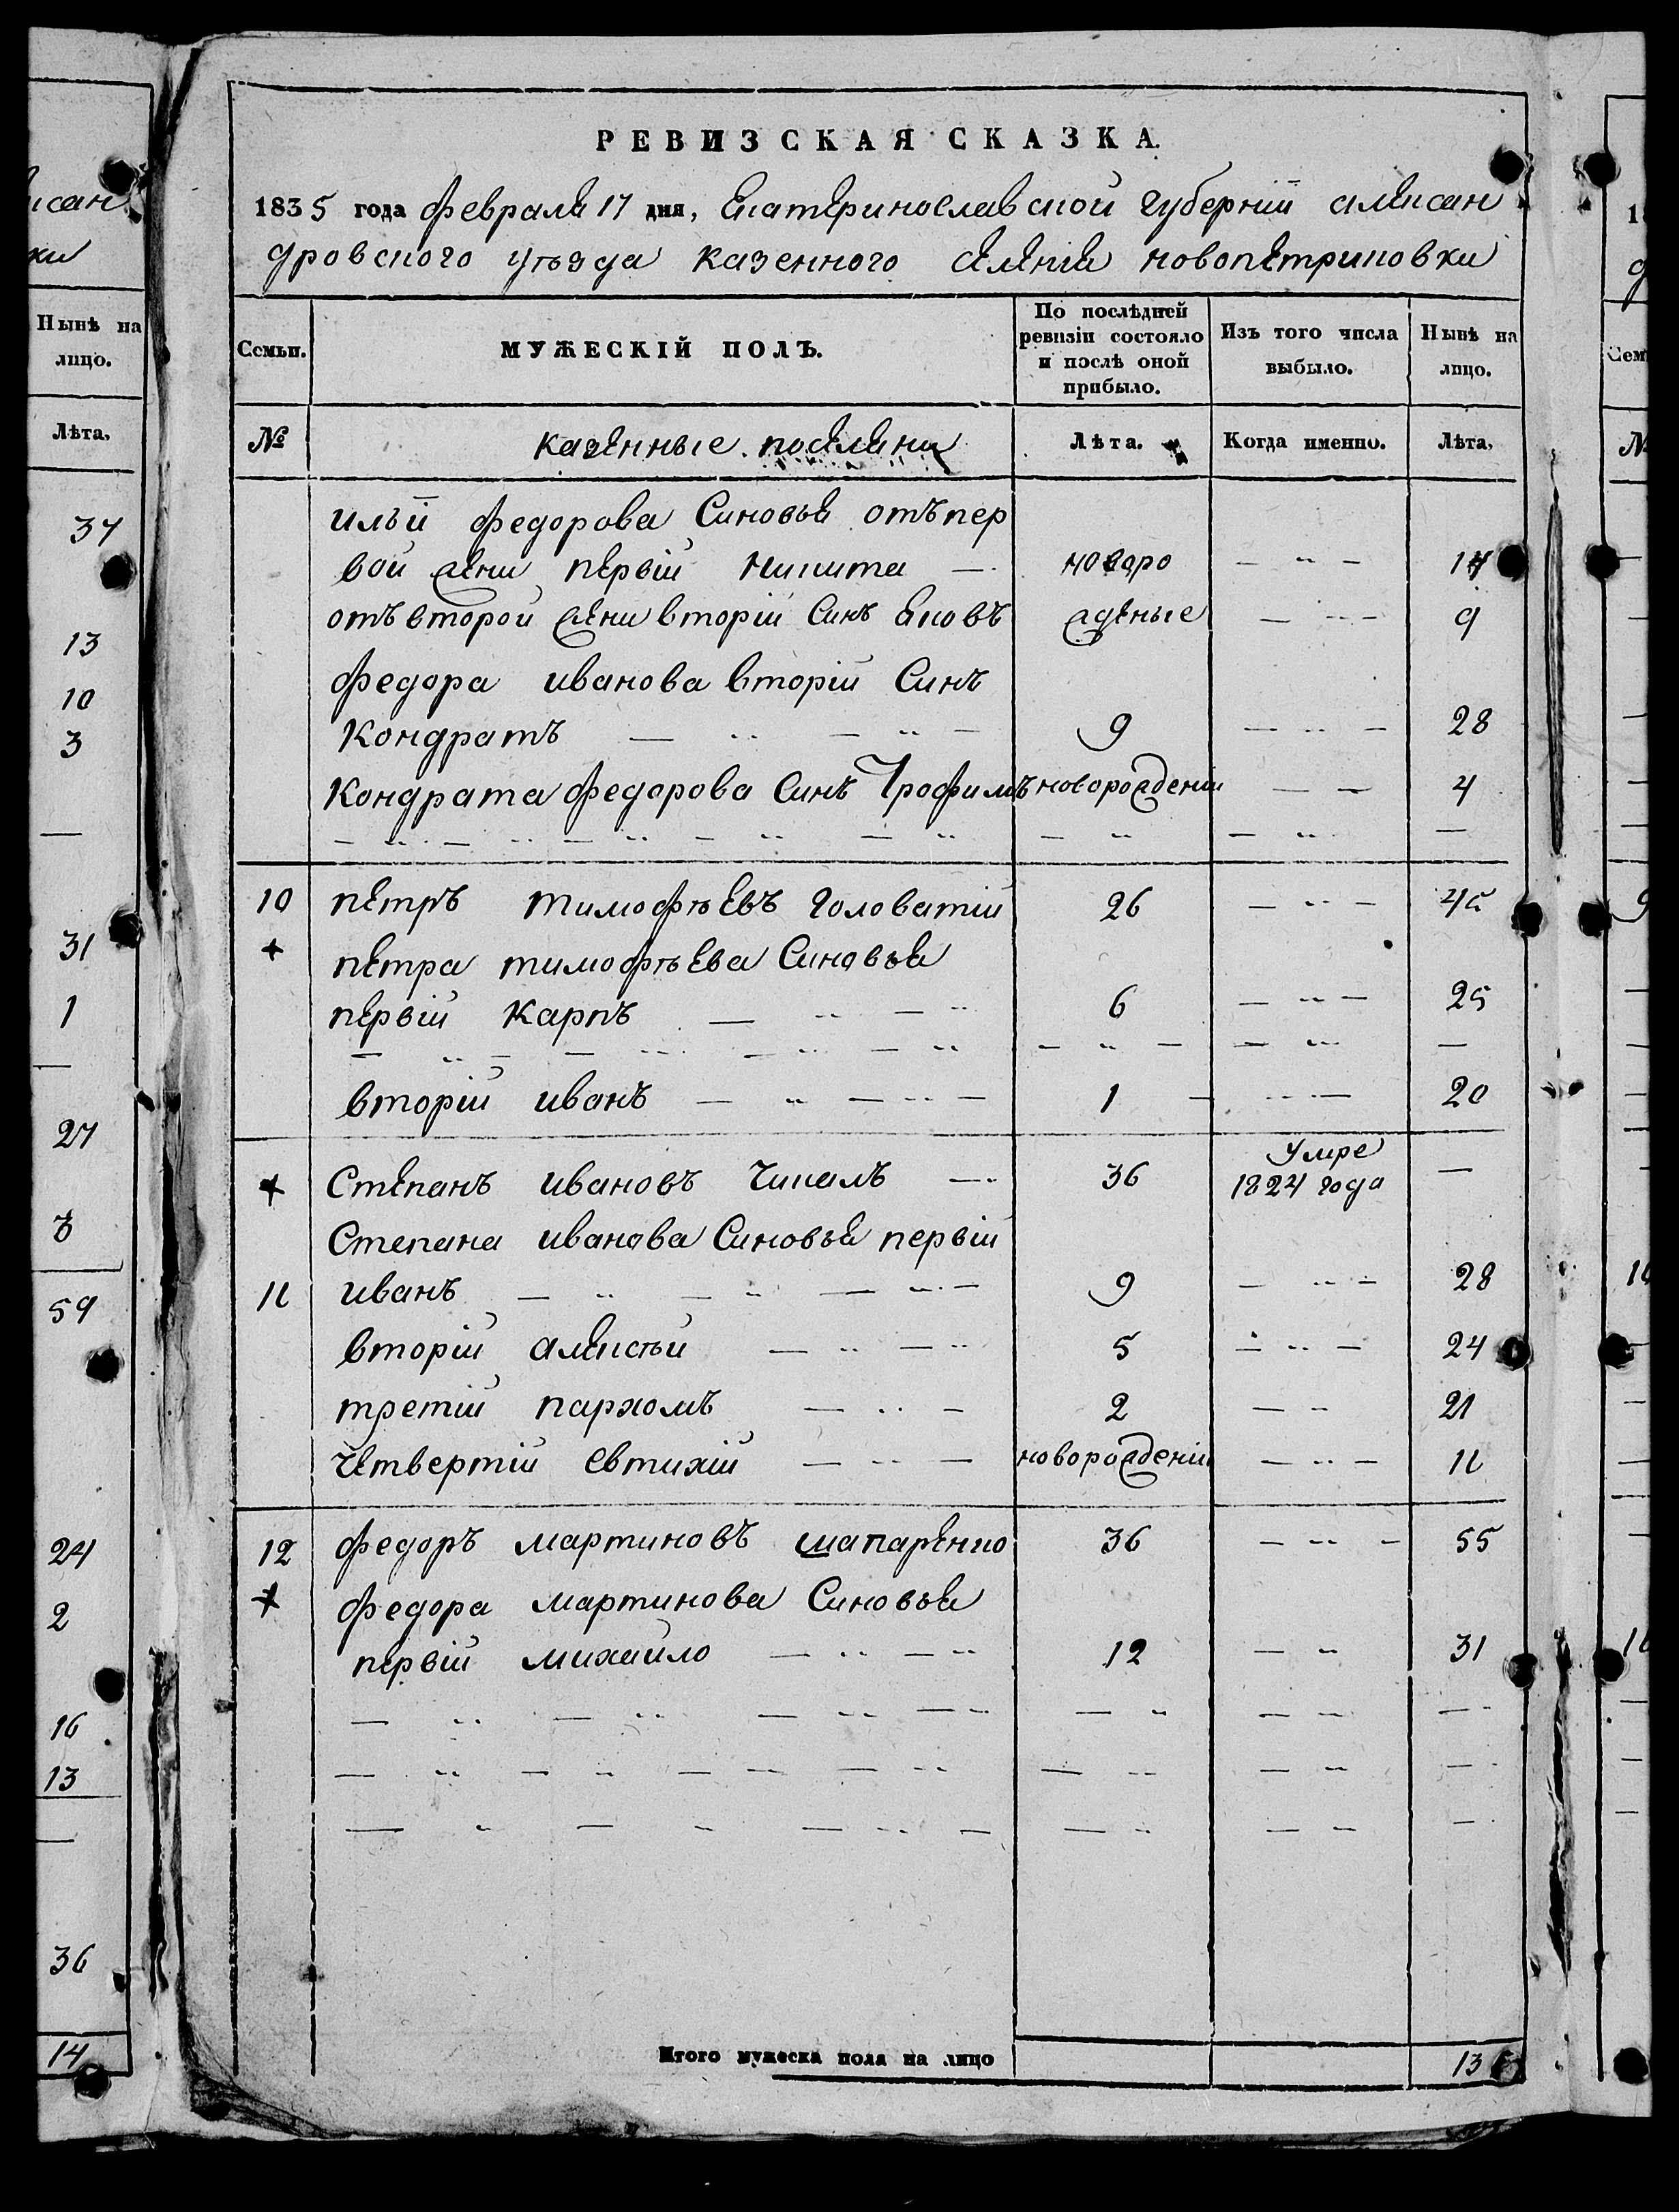 РЕВИЗСКАЯ СКАЗКА.
1835 года февраля 17 дня, Екатеринославской губерніи алексан
дровского уѣзда казенного селенія новопетриковки
Семьи.
МУЖЕСКІЙ ПОЛЪ.
По послѣдней ревизіи состояло и послѣ оной прибыло.
Изъ того числа выбыло.
Нынѣ на лицо.
№ казенные поселяни Лѣта. Когда именно. Лѣта.
ильи федорова Синовья отъ пер
вой жени первій никита — новоро — 14
отъ второй жени вторій Синъ яковъ жденые — 9
федора иванова вторій Синъ
Кондратъ — 9 — 28
Кондрата федорова Синъ Трофимъ новорожденій — 4
10 петръ тимофѣевъ головатій 26 — 45
петра тимофѣева Синовья
первій Карпъ — 6 — 25
вторій иванъ — 1 — 20
Степанъ ивановъ Чикалъ — 36 Умре 1824 года —
Степана иванова Синовья первій
11 иванъ — 9 — 28
вторій алексѣй — 5 — 24
третій пархомъ — 2 — 21
Четвертій евтихій — новорожденій — 11
12 федоръ мартиновъ шапаренко 36 — 55
федора мартинова Синовья
первій михайло — 12 — 31
Итого мужеска пола на лицо 13
Нынѣ на лицо.
Лѣта.
37
13
10
3
31
1
27
59
24
2
16
13
36
14